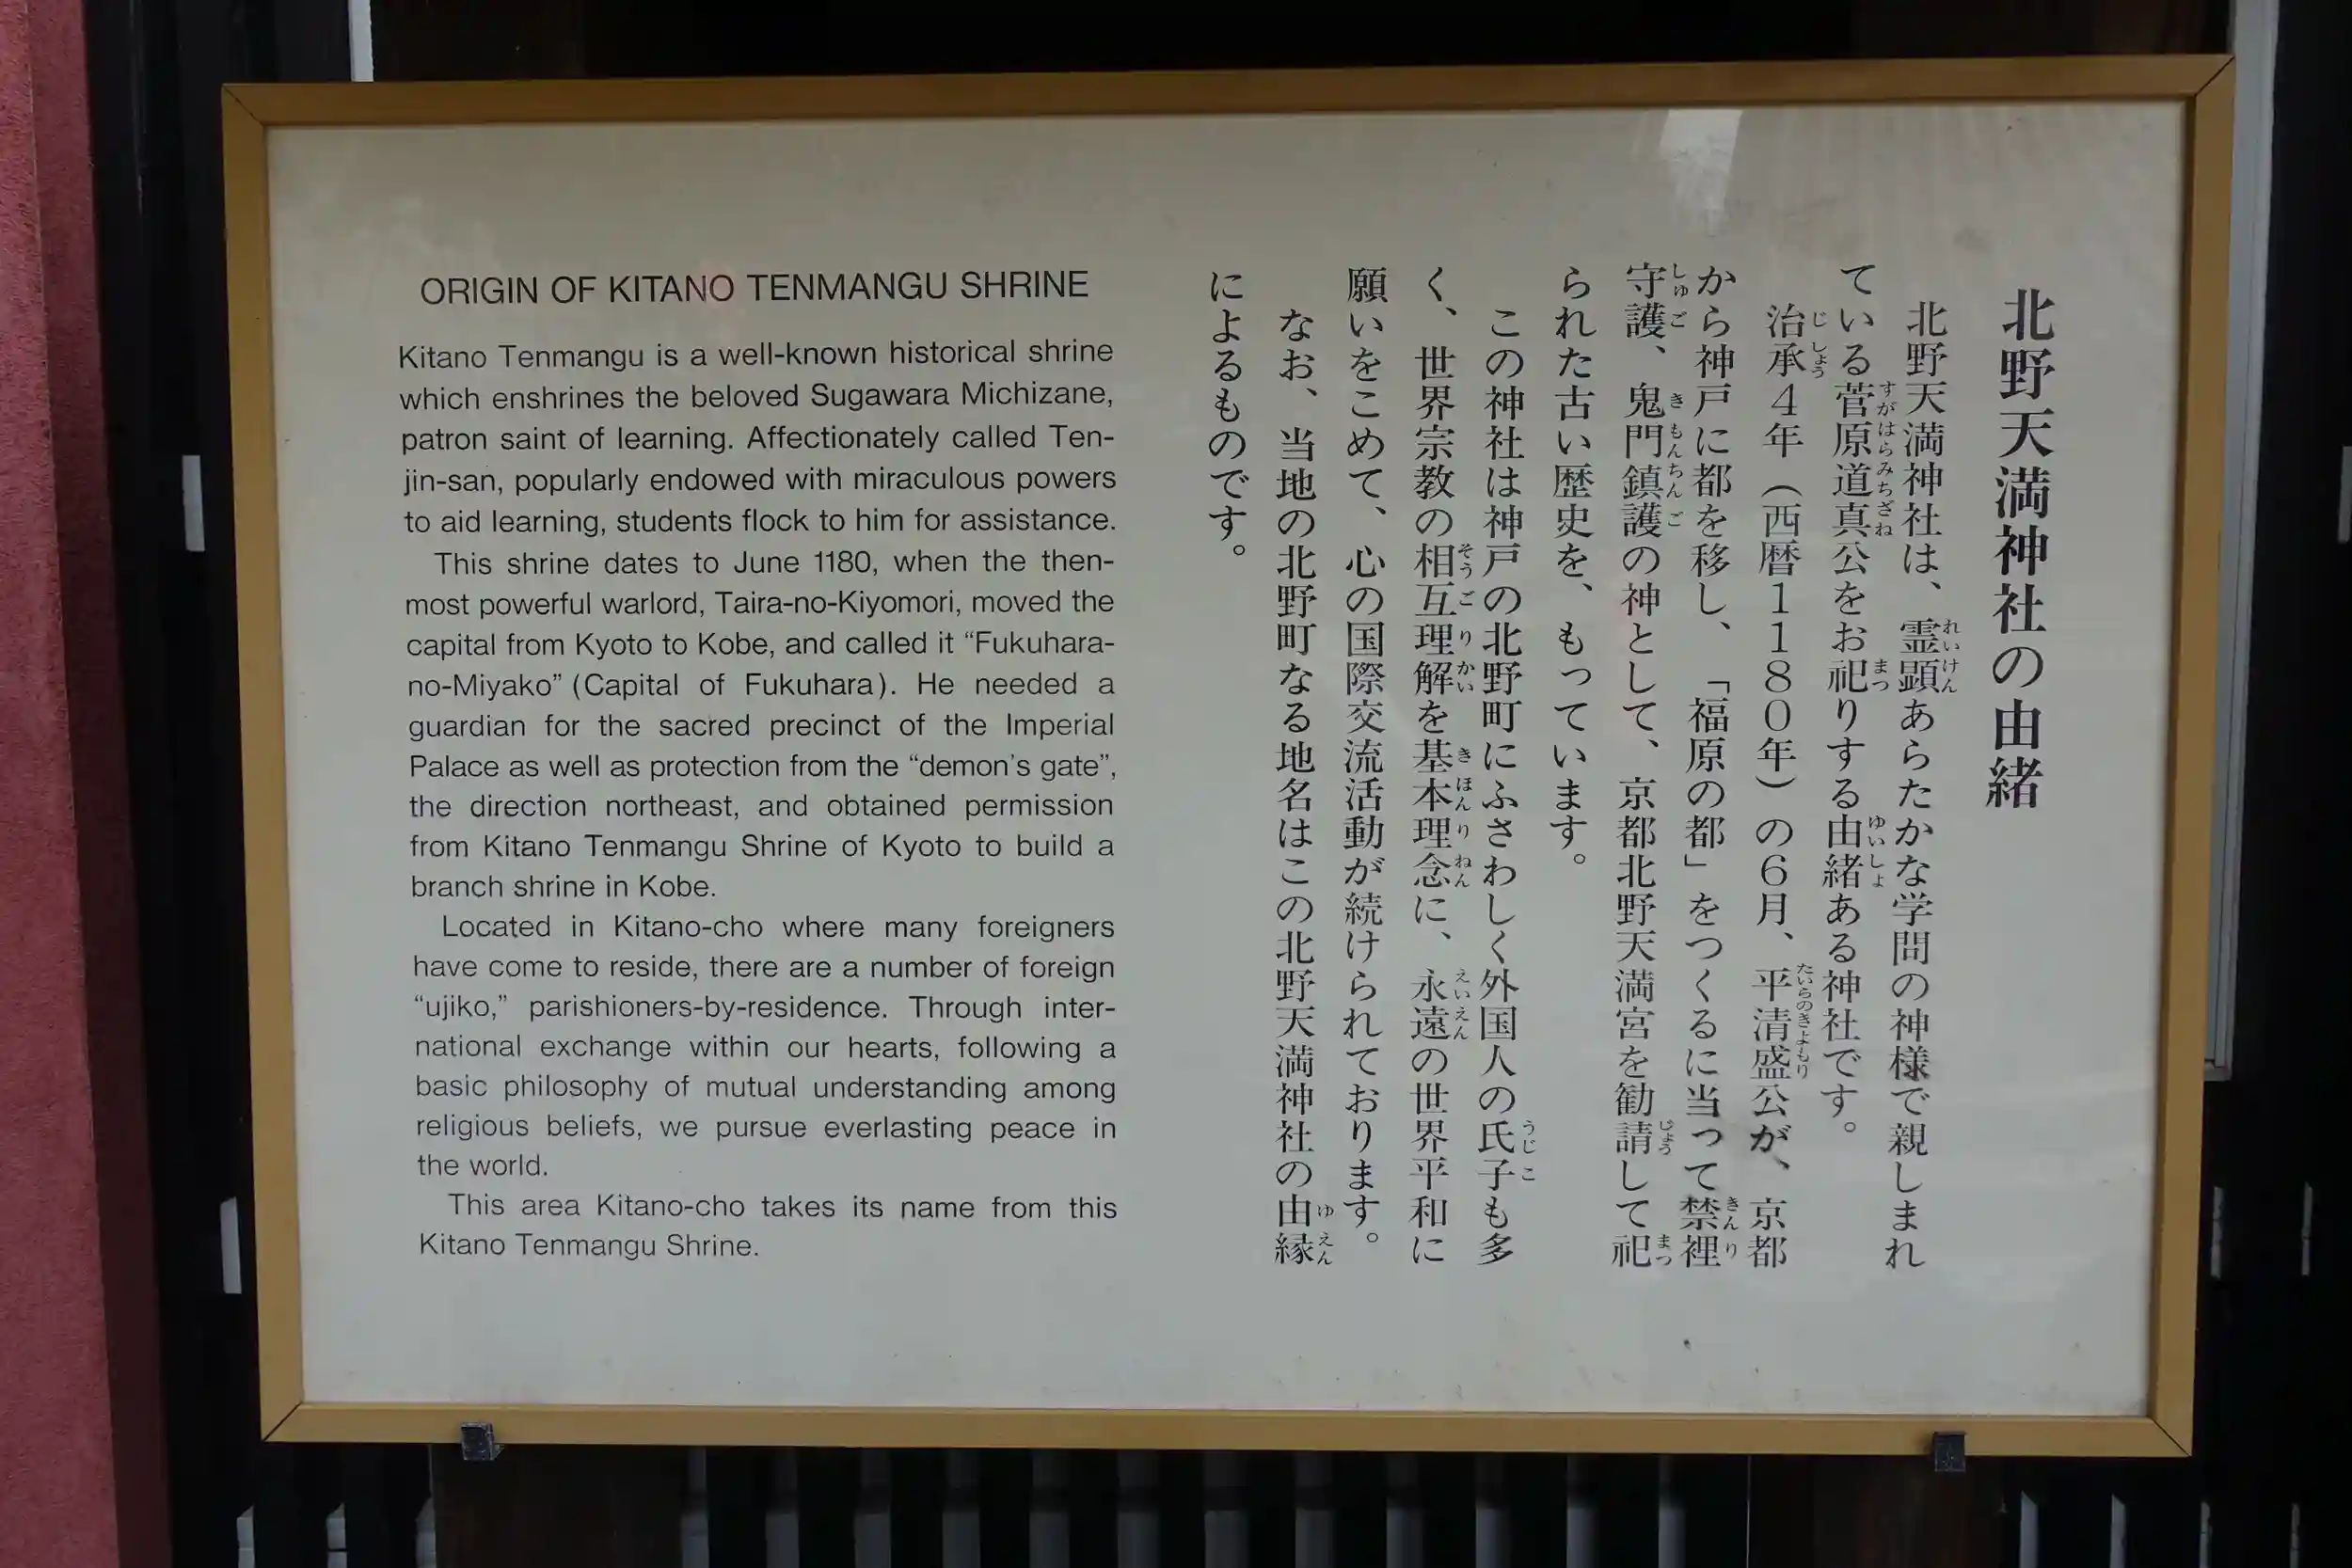 ORIGIN OF KITANO TENMANGU SHRINE
Kitano Tenmangu is a well-known historical shrine
which enshrines the beloved Sugawara Michizane,
patron saint of learning. Affectionately called Ten-
jin-san, popularly endowed with miraculous powers
to aid learning, students flock to him for assistance.
This shrine dates to June 1180, when the then-
most powerful warlord, Taira-no-Kiyomori, moved the
capital from Kyoto to Kobe, and called it “Fukuhara-
no-Miyako” (Capital of Fukuhara). He needed a
guardian for the sacred precinct of the Imperial
Palace as well as protection from the “demon's gate”,
the direction northeast, and obtained permission
from Kitano Tenmangu Shrine of Kyoto to build a
branch shrine in Kobe.
Located in Kitano-cho where many foreigners
have come to reside, there are a number of foreign
“ujiko,” parishioners-by-residence. Through inter-
national exchange within our hearts, following a
basic philosophy of mutual understanding among
religious beliefs, we pursue everlasting peace in
the world.
This area Kitano-cho takes its name from this
Kitano Tenmangu Shrine.
北野天満神社の由緒
北野天満神社は、霊顕あらたかな学問の神様で親しまれ
ている菅原道真公をお祀りする由緒ある神社です。
治承4年（西暦1180年）の6月、平清盛公が、京都
から神戸に都を移し、「福原の都」をつくるに当って禁裡
守護、鬼門鎮護の神として、京都北野天満宮を勧請して祀
られた古い歴史を、もっています。
この神社は神戸の北野町にふさわしく外国人の氏子も多
く、世界宗教の相互理解を基本理念に、永遠の世界平和に
願いをこめて、心の国際交流活動が続けられております。
なお、当地の北野町なる地名はこの北野天満神社の由縁
によるものです。